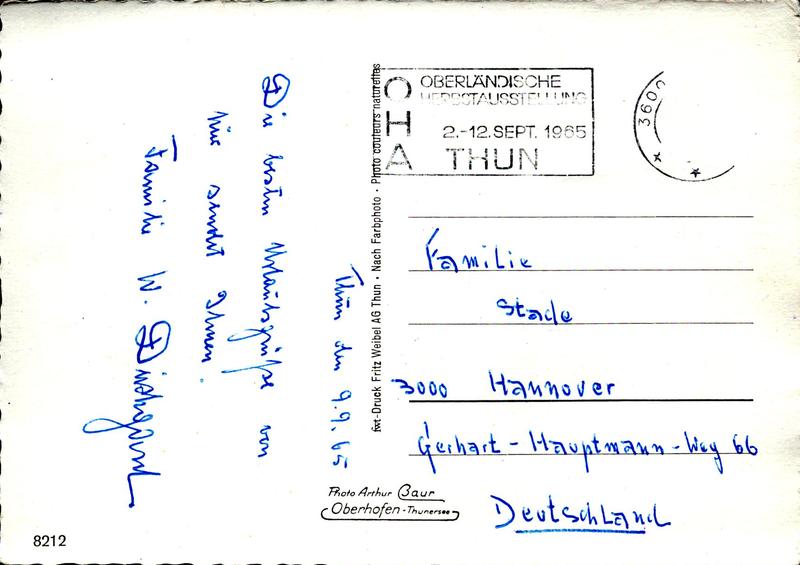 Thun den 9.9.65
Die besten Urlaubsgrüße von
hier sendet Ihnen
Familie W.
fwt-Druck Fritz Weibel AG Thun · Nach Farbphoto · Photo couleurs naturelles
OHA
OBERLÄNDISCHE
HERBSTAUSSTELLUNG
2.-12. SEPT. 1965
THUN
3600
Familie
Stade
3000 Hannover
Gerhart-Hauptmann-Weg 66
Deutschland
Photo Arthur Baur
Oberhofen-Thunersee
8212